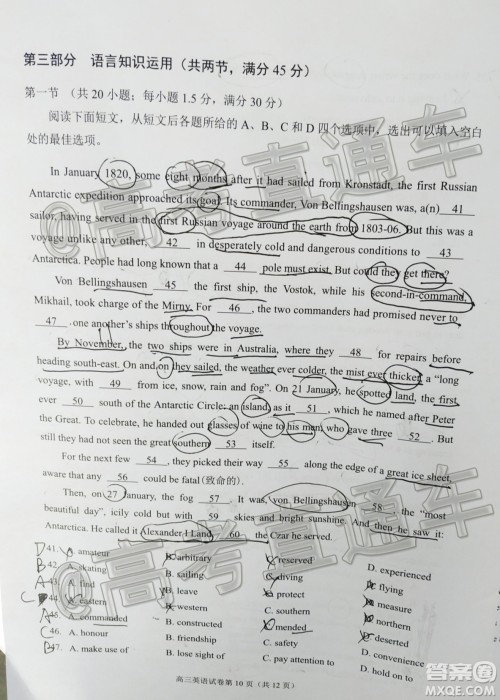 第三部分 语言知识运用（共两节，满分 45 分）
第一节 （共 20 小题；每小题 1.5 分，满分 30 分）
阅读下面短文，从短文后各题所给的 A、B、C 和 D 四个选项中，选出可以填入空白
处的最佳选项。
In January 1820, some eight months after it had sailed from Kronstadt, the first Russian
Antarctic expedition approached its goal. Its commander, Von Bellingshausen was, a(n) 41
sailor, having served in the first Russian voyage around the earth from 1803-06. But this was a
voyage unlike any other, 42 in desperately cold and dangerous conditions to 43
Antarctica. People had long known that a 44 pole must exist. But could they get there?
Von Bellingshausen 45 the first ship, the Vostok, while his second-in-command,
Mikhail, took charge of the Mirny. For 46 , the two commanders had promised never to
47 , one another's ships throughout the voyage.
By November, the two ships were in Australia, where they 48 for repairs before
heading south-east. On and on they sailed, the weather ever colder, the mist ever thicker, a “long
voyage, with 49 from ice, snow, rain and fog”. On 21 January, he spotted land, the first
ever 50 south of the Antarctic Circle, an island as it 51 , which he named after Peter
the Great. To celebrate, he handed out glasses of wine to his men who gave three 52 . But
still they had not seen the great southern 53 itself.
For the next few 54 , they picked their way 55 along the edge of a great ice sheet,
aware that any 56 could be fatal (致命的).
Then, on 27 January, the fog 57 . It was, von Bellingshausen 58 , the “most
beautiful day”, icily cold but with 59 skies and bright sunshine. And then he saw it:
Antarctica. He called it Alexander I Land, 60 the Czar he served.
D 41. A. amateur B. arbitrary C. reserved D. experienced
B 42. A. skating B. sailing C. diving D. flying
A 43. A. find B. leave C. protect D. measure
C 44. A. eastern B. western C. southern D. northern
A 45. A. commanded B. constructed C. mended D. deserted
C 46. A. honour B. friendship C. safety D. convenience
B 47. A. make use of B. lose sight of C. pay attention to D. hold on to
高三英语试卷第 10 页（共 12 页）
高考直通车
高考直通车
高考直通车